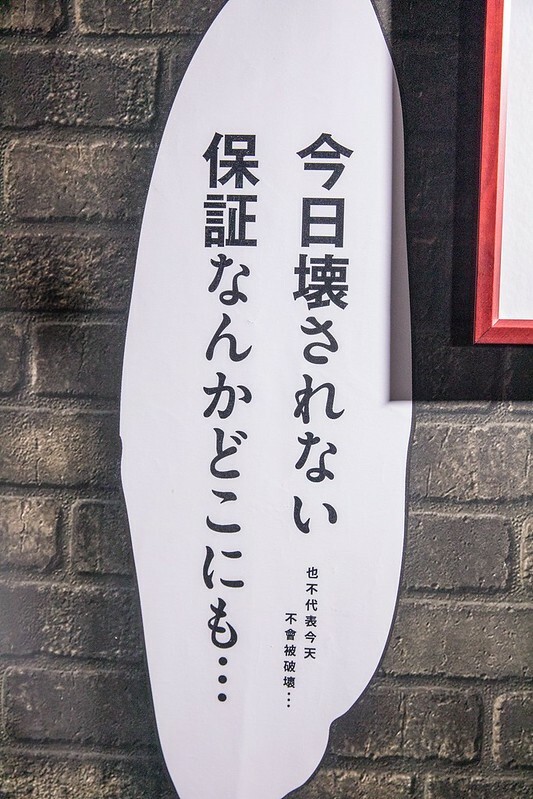 今日壊されない
保証なんかどこにも…
也不代表今天
不會被破壞…